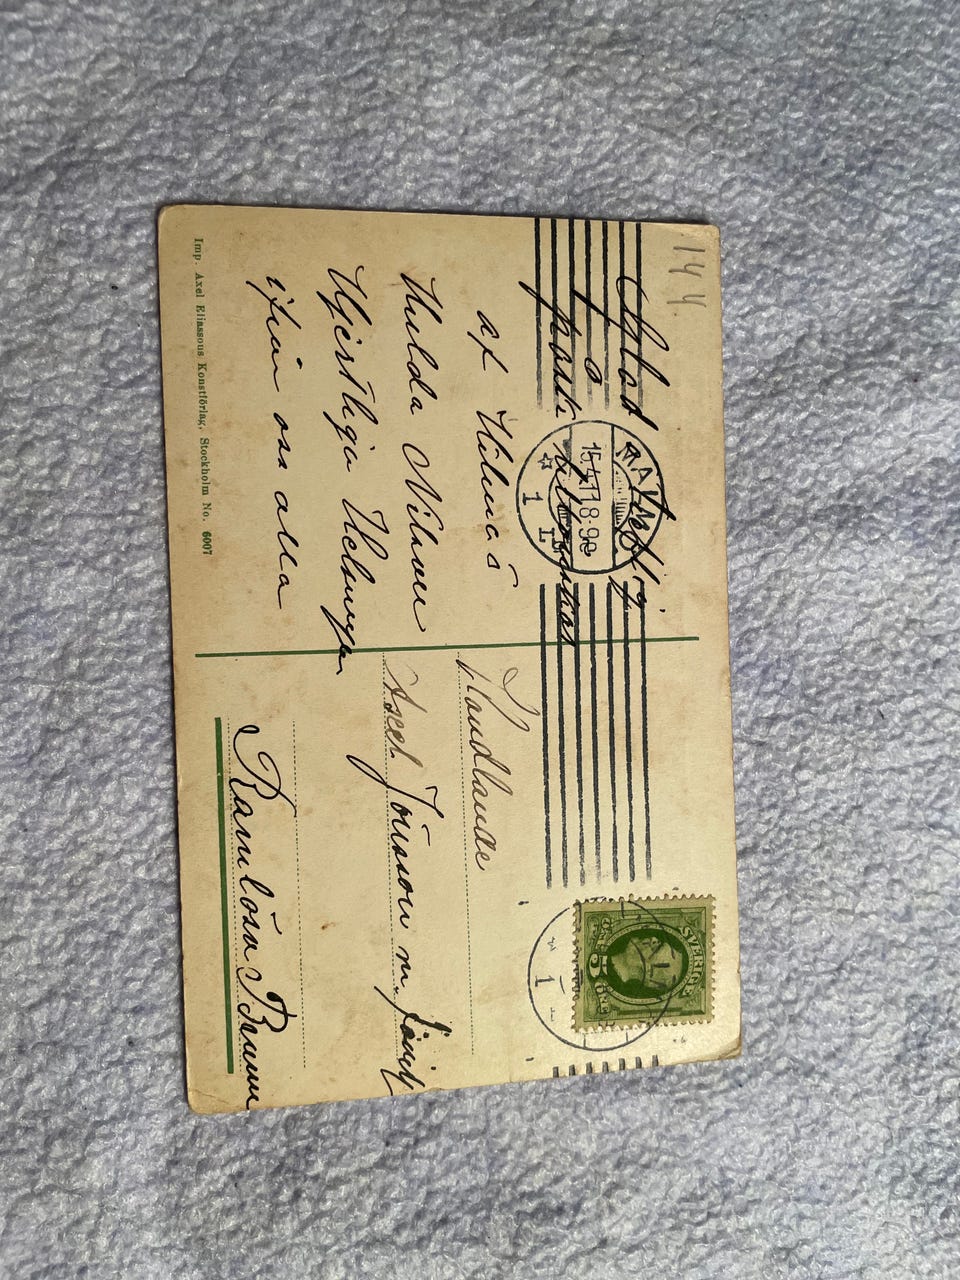 144
Glad
påsk
af Hilma
Hulda Nilson
Hjertliga Helsningar
ifrån oss alla
Handlande
Axel Jönsson m. familj
Ramlösa Brunn
15.4.11 8-9
1
SVERIGE
5
ÖRE
1
Imp. Axel Eliassons Konstförlag, Stockholm No. 6007